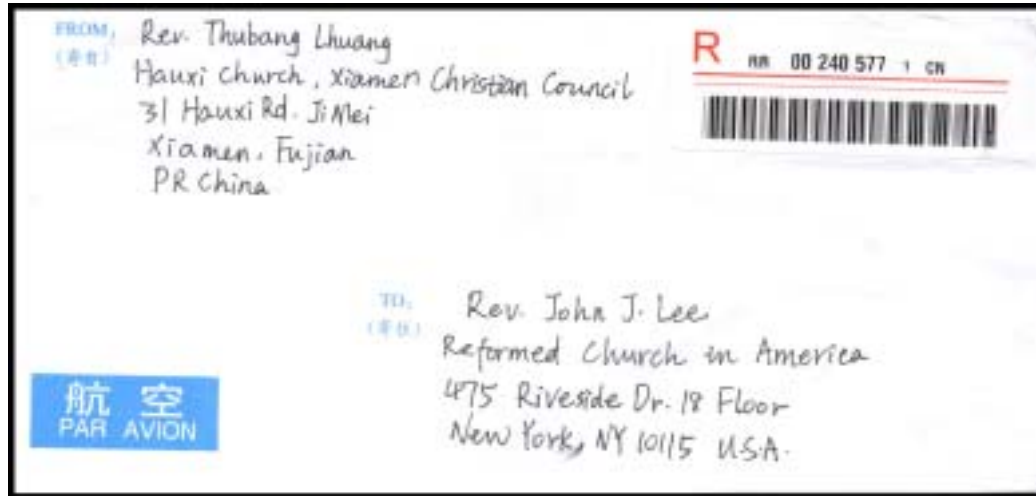 FROM:
Rev. Thubang Lhuang
(寄自)
Hauxi Church, Xiamen Christian Council
31 Hauxi Rd. JiMei
Xiamen, Fujian
PR China
R
RR 00 240 577 1 CN
TO:
Rev. John J. Lee
(寄往)
Reformed Church in America
475 Riveside Dr. 18 Floor
New York, NY 10115 U.S.A.
航 空
PAR AVION